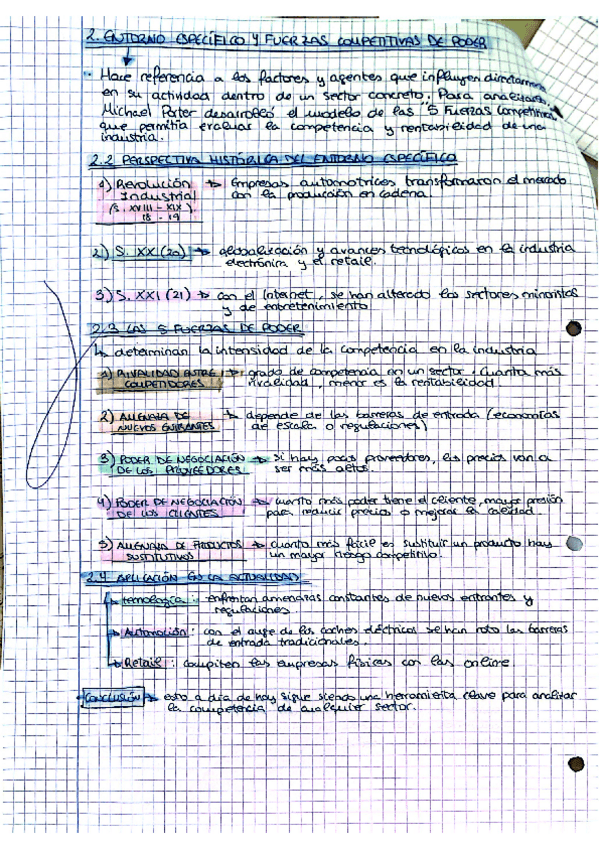 2. ENTORNO ESPECÍFICO Y FUERZAS COMPETITIVAS DE PODER
Hace referencia a los factores y agentes que influyen directamente
en su actividad dentro de un sector concreto. Para analizarlo
Michael Porter desarrolló el modelo de las "5 Fuerzas Competitivas"
que permitía evaluar la competencia y rentabilidad de una
industria.
2.2 PERSPECTIVA HISTÓRICA DEL ENTORNO ESPECÍFICO
1) Revolución → Empresas automotrices transformaron el mercado
Industrial con la producción en cadena.
(S. XVIII - XIX)
18 - 19
2) S. XX (20) → globalización y avances tecnológicos en la industria
electrónica y el retail.
3) S. XXI (21) → con el Internet, se han alterado los sectores minoristas
y de entretenimiento
2.3 LAS 5 FUERZAS DE PODER
↳ determinan la intensidad de la competencia en la industria
1) RIVALIDAD ENTRE → grado de competencia en un sector. Cuanta más
COMPETIDORES rivalidad, menor es la rentabilidad.
2) AMENAZA DE → depende de las barreras de entrada (economías
NUEVOS ENTRANTES de escala o regulaciones)
3) PODER DE NEGOCIACIÓN → si hay pocos proveedores, los precios van a
DE LOS PROVEEDORES ser más altos.
4) PODER DE NEGOCIACIÓN → cuanto más poder tiene el cliente, mayor presión
DE LOS CLIENTES para reducir precios o mejorar la calidad.
5) AMENAZA DE PRODUCTOS → cuanto más fácil es sustituir un producto hay
SUSTITUTIVOS un mayor riesgo competitivo.
2.4 APLICACIÓN EN LA ACTUALIDAD
→ tecnología: enfrentan amenazas constantes de nuevos entrantes y
regulaciones
→ Automoción: con el auge de los coches eléctricos se han roto las barreras
de entrada tradicionales.
→ Retail: compiten las empresas físicas con las online
CONCLUSIÓN → esto a día de hoy sigue siendo una herramienta clave para analizar
la competencia de cualquier sector.